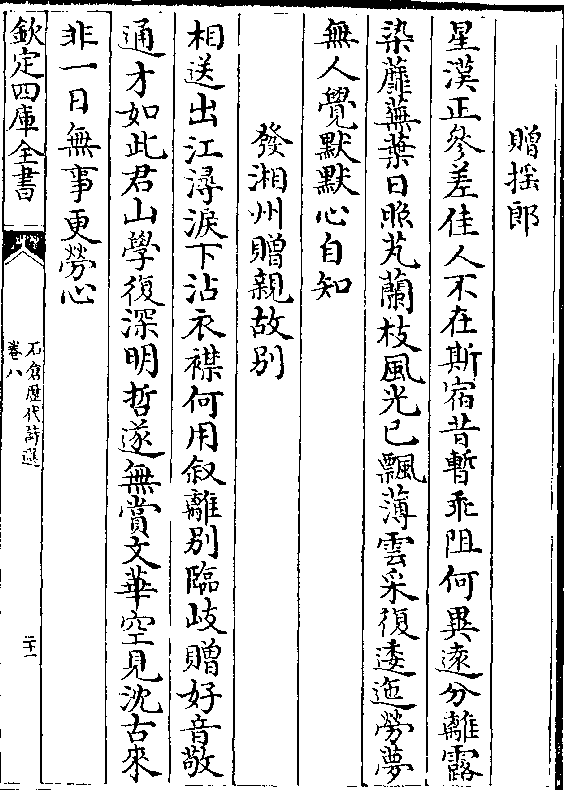 贈揺郎
星漢正參差佳人不在斯宿昔暫乖阻何異遠分離露
染蘼蕪葉日照芄蘭枝風光已飄薄雲采復逶迤勞夢
無人覺默默心自知
發湘州贈親故别
相送出江潯淚下沾衣襟何用叙離别臨岐贈好音敬
通才如此君山學復深明哲遂無賞文華空見沈古來
非一日無事更勞心
欽定四庫全書
石倉歴代詩選
卷八
二十一